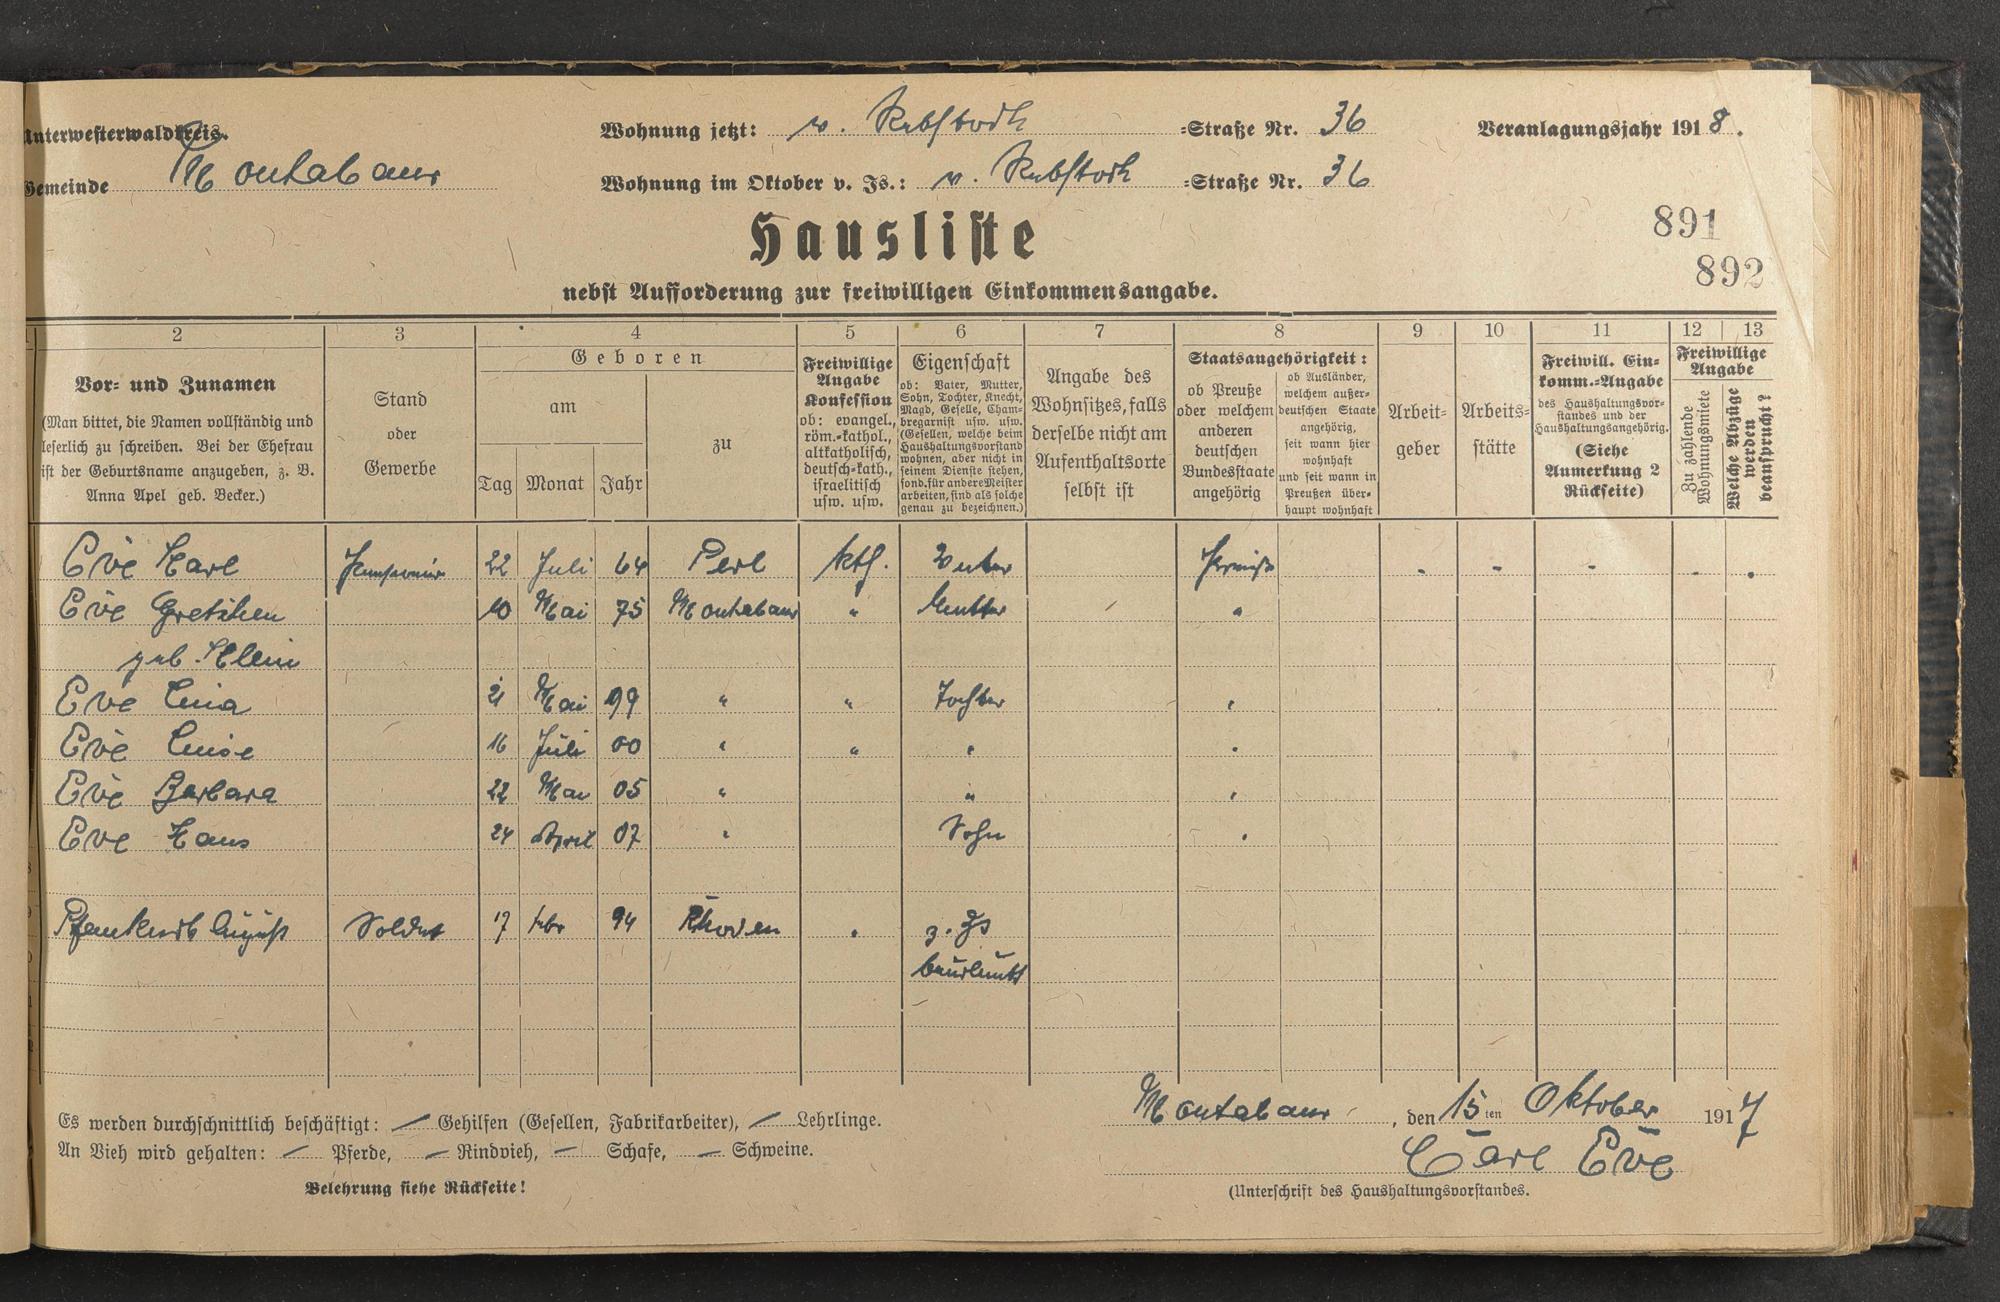 Unterwesterwaldkreis.
Gemeinde Montabaur
Wohnung jetzt: v. Rebstock =Straße Nr. 36
Wohnung im Oktober v. Js.: v. Rebstock =Straße Nr. 36
Veranlagungsjahr 1918.
891
892
Hausliste
nebst Aufforderung zur freiwilligen Einkommensangabe.
2 3 4 5 6 7 8 9 10 11 12 13
Vor= und Zunamen
(Man bittet, die Namen vollständig und
leserlich zu schreiben. Bei der Ehefrau
ist der Geburtsname anzugeben, z. B.
Anna Apel geb. Becker.)
Stand
oder
Gewerbe
Geboren
am
Tag Monat Jahr
zu
Freiwillige
Angabe
Konfession
ob: evangel.,
röm.=kathol.,
altkatholisch,
deutsch=kath.,
israelitisch
usw. usw.
Eigenschaft
ob: Vater, Mutter,
Sohn, Tochter, Knecht,
Magd, Geselle, Cham=
bregarnist usw. usw.
(Gesellen, welche beim
Haushaltungsvorstand
wohnen, aber nicht in
seinem Dienste stehen,
sond. für andere Meister
arbeiten, sind als solche
genau zu bezeichnen.)
Angabe des
Wohnsitzes, falls
derselbe nicht am
Aufenthaltsorte
selbst ist
Staatsangehörigkeit:
ob Preuße
oder welchem
anderen
deutschen
Bundesstaate
angehörig
ob Ausländer,
welchem außer=
deutschen Staate
angehörig,
seit wann hier
wohnhaft
und seit wann in
Preußen über=
haupt wohnhaft
Arbeit=
geber
Arbeits=
stätte
Freiwill. Ein=
komm.=Angabe
des Haushaltungsvor=
standes und der
Haushaltungsangehörig.
(Siehe
Anmerkung 2
Rückseite)
Freiwillige
Angabe
Zu zahlende
Wohnungsmiete
Welche Abzüge
werden
beansprucht?
Eve Karl 22 Juli 64 Perl kth. Vater Preuße - - - - -
Eve Gretchen 10 Mai 75 Montabaur " Mutter "
geb. Klein
Eve Lina 21 Mai 99 " " Tochter "
Eve Luise 16 Juli 00 " " " "
Eve Barbara 22 Mai 05 " " "
Eve Hans 24 April 07 " Sohn "
August Soldat 17 Febr 94 Rhoden " z. Zt
beurlaubt
Es werden durchschnittlich beschäftigt: — Gehilfen (Gesellen, Fabrikarbeiter), — Lehrlinge.
An Vieh wird gehalten: — Pferde, — Rindvieh, — Schafe, — Schweine.
Belehrung siehe Rückseite!
Montabaur, den 15ten Oktober 1917
Carl Eve
(Unterschrift des Haushaltungsvorstandes.